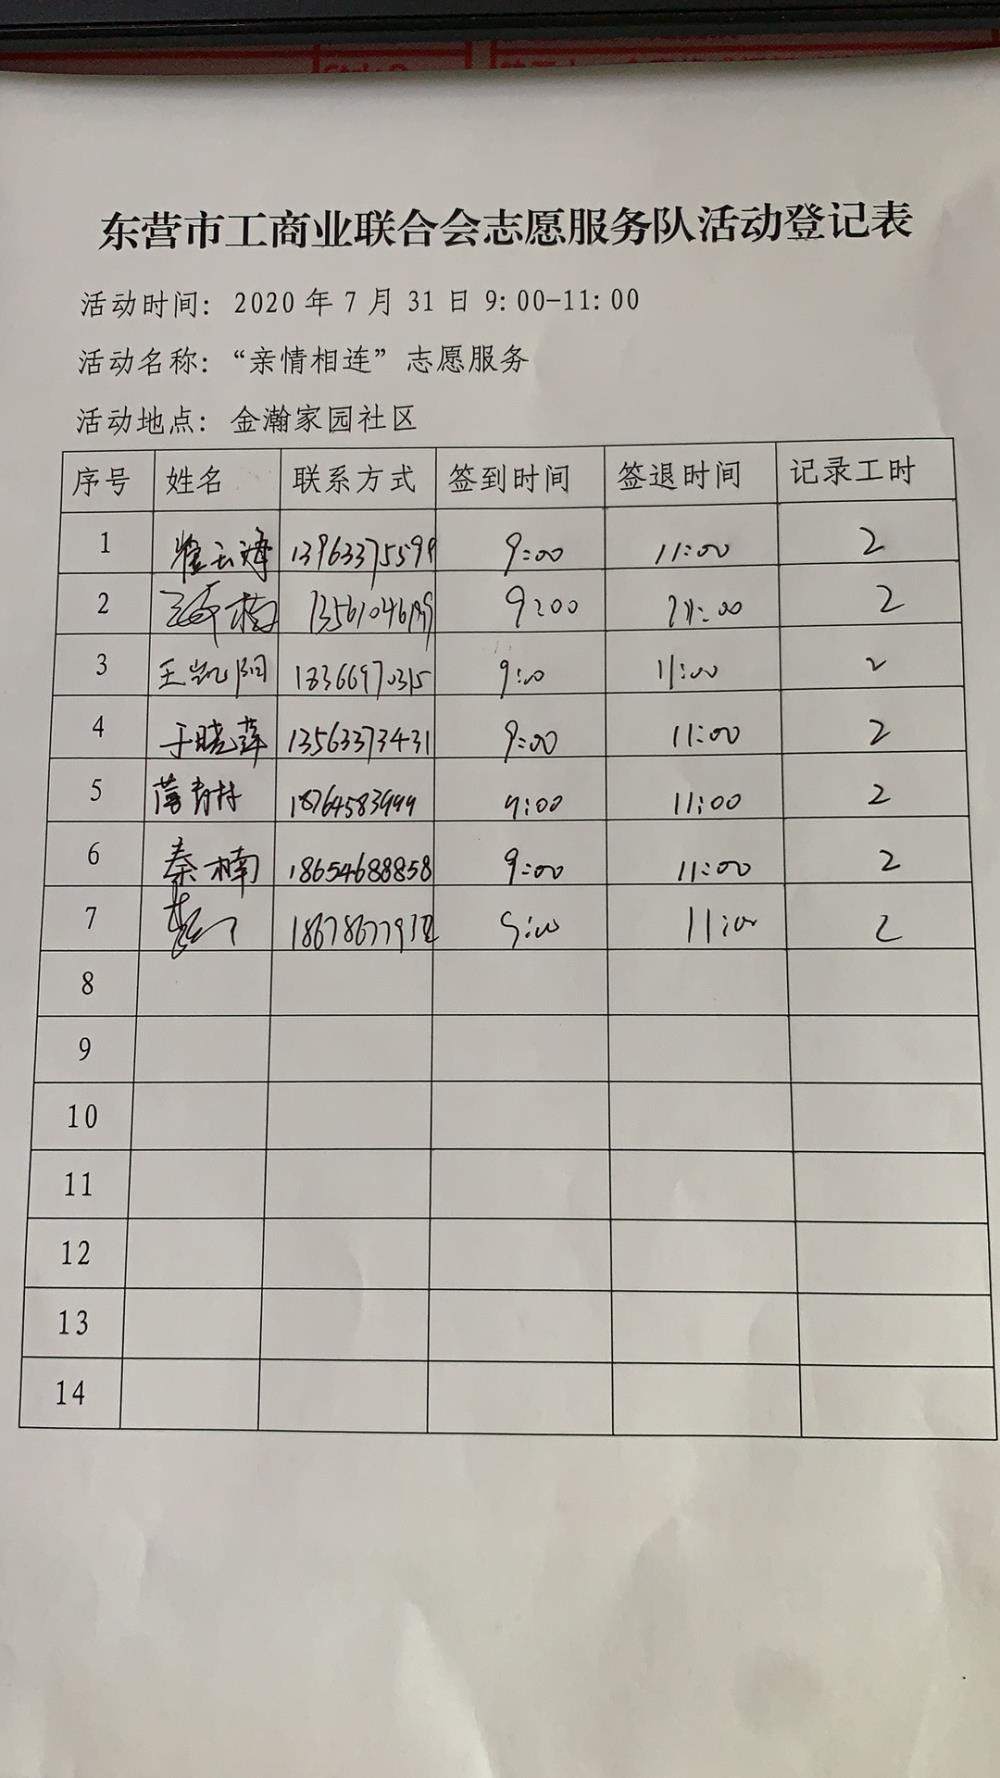 东营市工商业联合会志愿服务队活动登记表
活动时间：2020 年 7 月 31 日 9：00-11：00
活动名称：“亲情相连”志愿服务
活动地点：金瀚家园社区
序号 姓名 联系方式 签到时间 签退时间 记录工时
1 云海 13963375599 9:00 11:00 2
2 9:00 11:00 2
3 王凯阳 18366970315 9:00 11:00 2
4 于晓萍 13563373431 9:00 11:00 2
5 18764583999 9:00 11:00 2
6 秦楠 18654688858 9:00 11:00 2
7 9:00 11:00 2
8
9
10
11
12
13
14